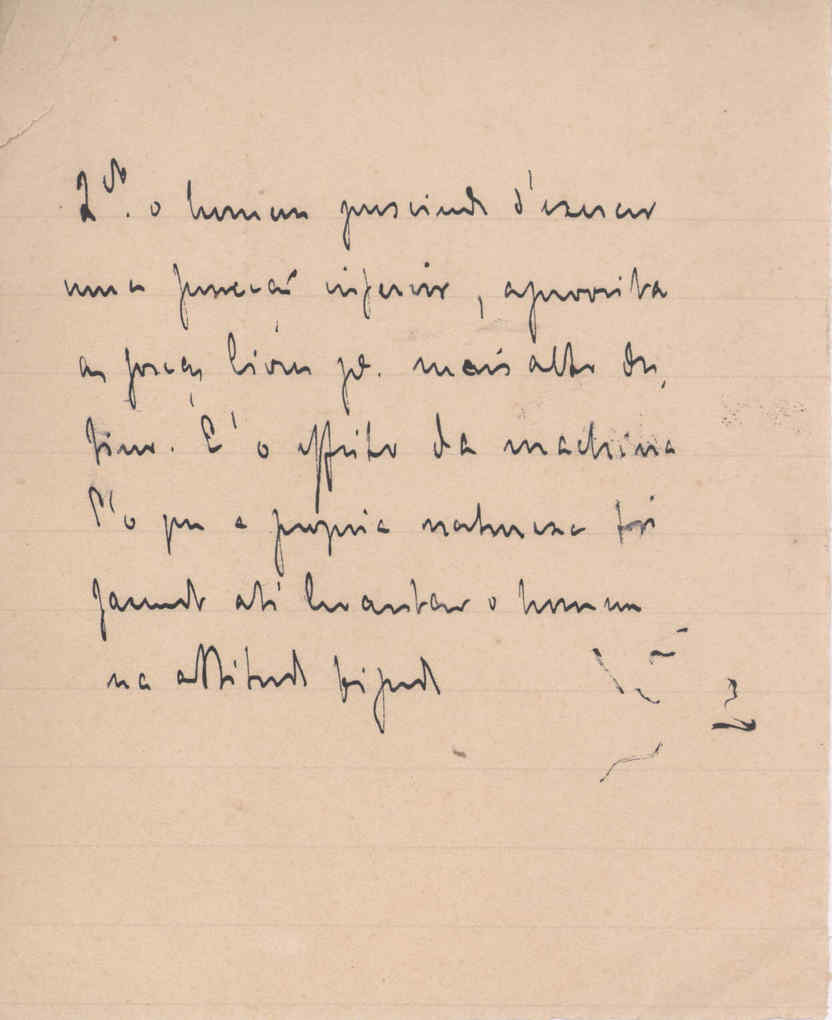 Qdo. o homem prescinde d'exercer
uma funcção inferior, aproveita
as forças livres pa. mais altos des,
tinos. É o effeito da machina
E' o que a propria natureza foi
fazendo até levantar o homem
na attitude bipede